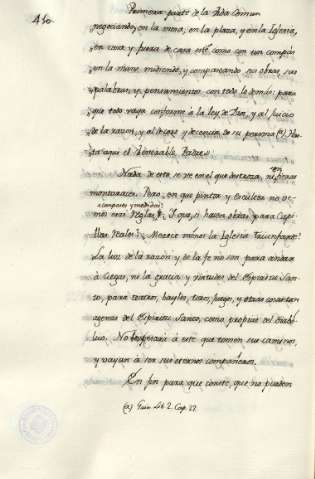 410
Primera parte de la Vida Comun
negociando, en la mesa, en la plaza, y en la Iglesia,
en casa y fuera de casa esté como con un compás
en la mano midiendo, y compasando sus obras, sus
palabras, y pensamientos con todo lo demás: para
que todo vaya conforme à la ley de Dios, y al juicio
de la razon, y al decoro y decencia de su persona (a). Has-
ta aqui el Venerable Padre.
Nada de esto se ve en el que destroza, ni en
montaraces. Pero, en que pintor y Escultor no ve-
compases y medidas
mos otras Reglas? I que, si hacen obras para Capi-
llas Reales? Merece menos la Iglesia
La luz de la razon y de la fe no son para andar
à ciegas, ni la gracia y virtudes del Espiritu San-
to, para teatro, bayles, toro, juego, y otras cosas tan
agenas del Espiritu Santo, como propias del diab-
lo. No à este que tomen sus caminos,
y vayan à ser sus eternos compañeros.
En fin para que conste, que no pueden
(a) Guia lib. 2. Cap. 17.